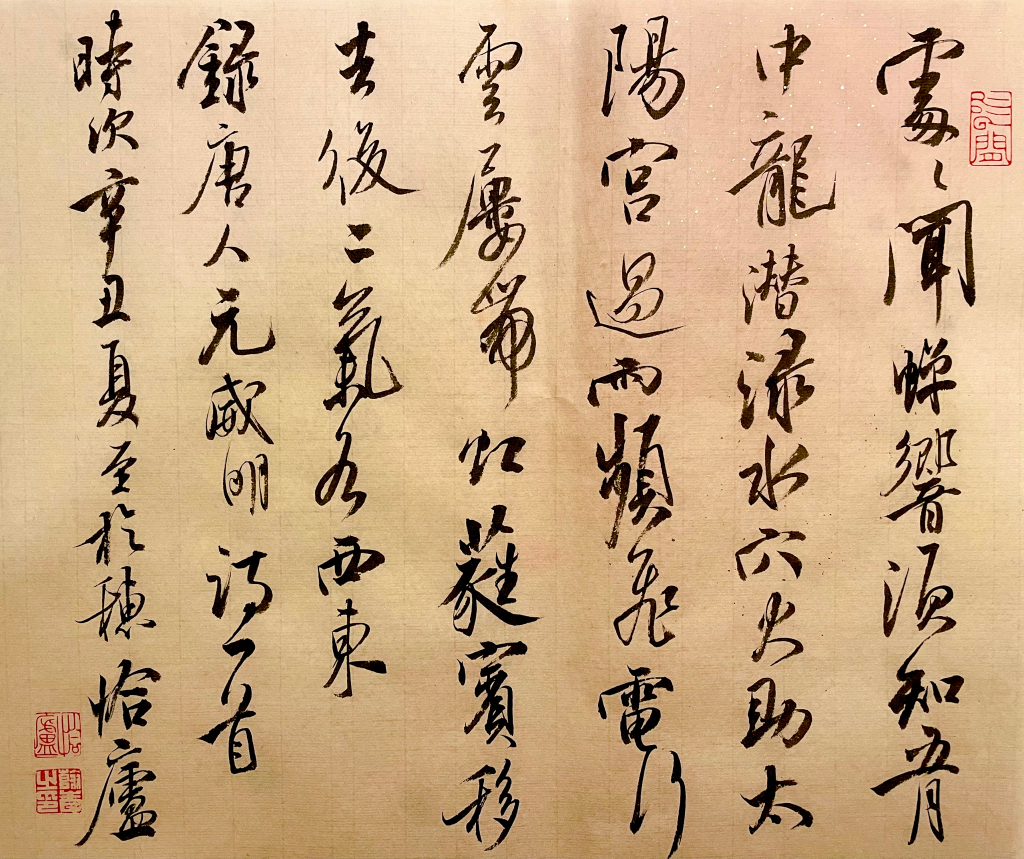 處〻聞蟬響湏知五月
中龍潜渌水穴火助太
陽宮過雨頻飛電行
雲屢帶虹蕤賓移
去後二氣各西東
錄唐人元威明詩一首
時次辛丑夏至於穗恰廬
恰盧